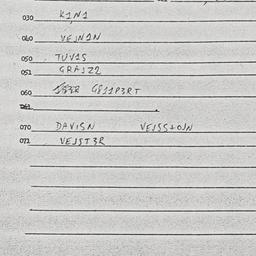 030 K1N1
040 VEJN1N
050 TUV1S
051 GRA1Z2
060 G811P3RT
061
070 DAVISN VEJSSTOJN
071 VEJST3R